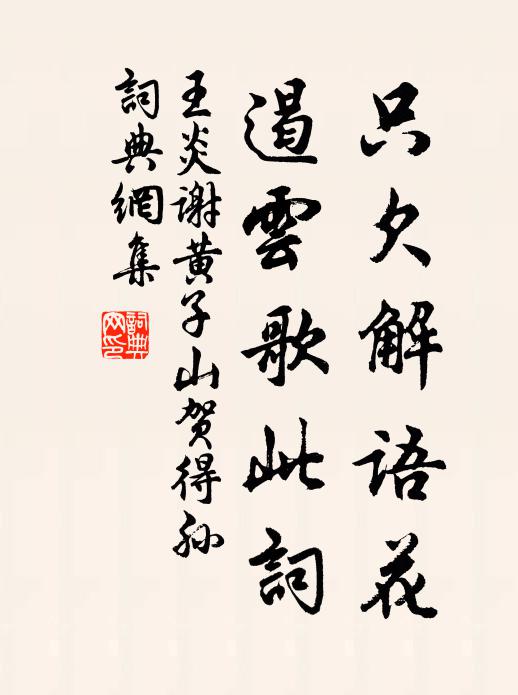 只欠解語花
遏雲歌此詞
王炎谢黄子山贺得孙
詞典網集
詞典网印